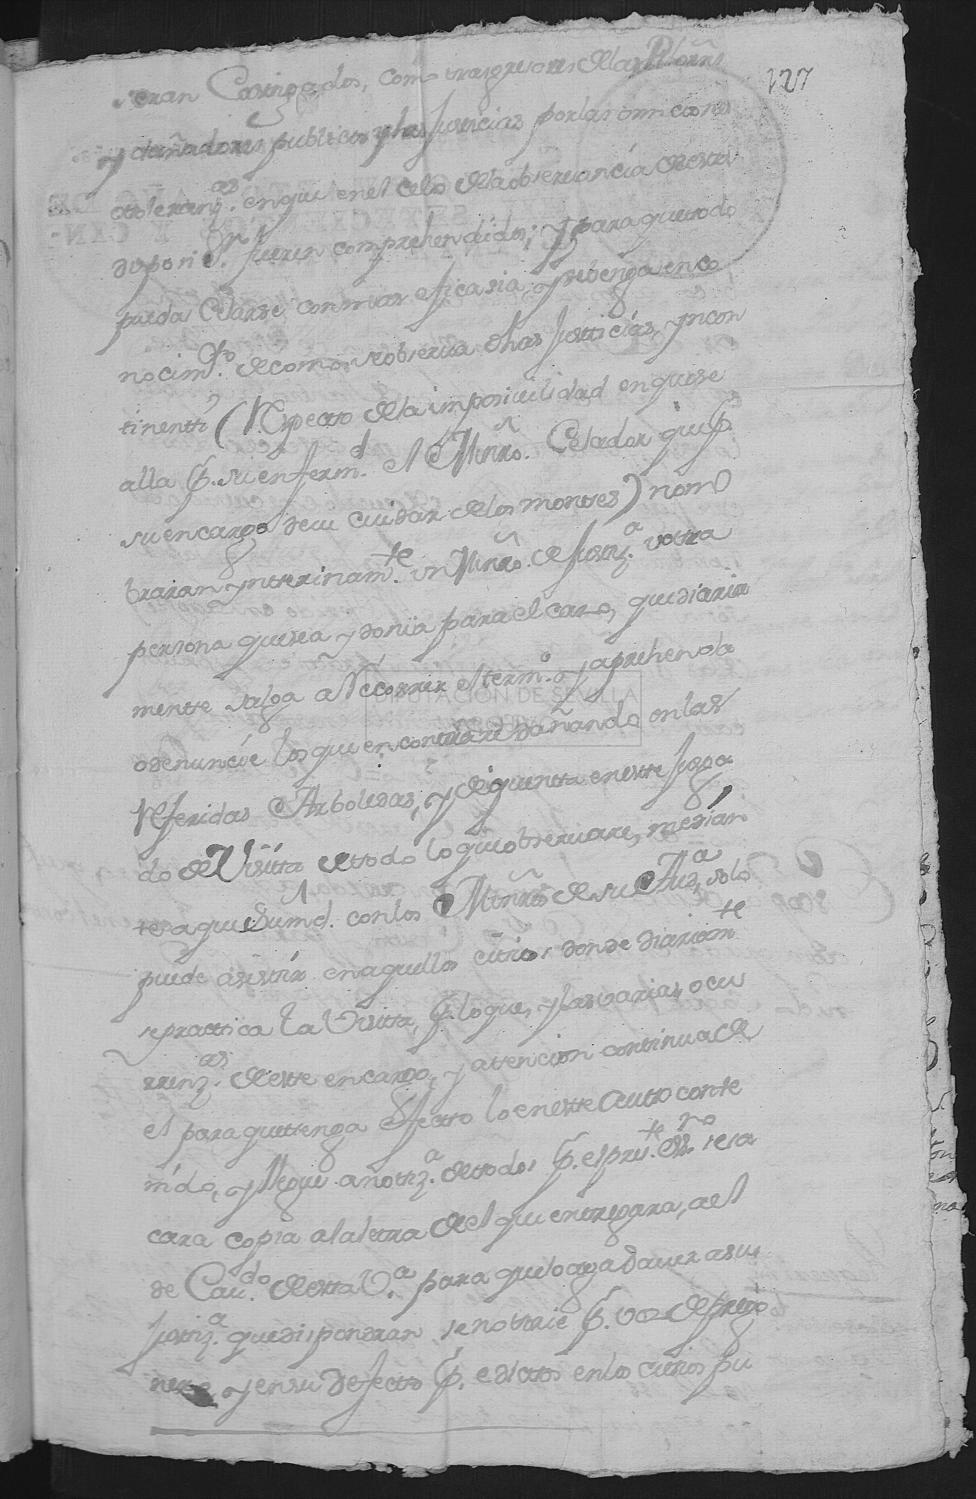 127
seran Castigados, como trasgresores de las Rs. orns
y dañadores publicos y las Justicias por las omiciones
o toleranzas. en que en el celo de la observancia de esta
disposiCn. fueren comprehendidos; y para que todo
pueda Celarse con maior eficasia, y se benga en co
nocimto. de como se observa dhas Justicias, yncon
tinenti (Respecto de la imposivilidad en que se
alla p. su enfermd. el Minro. Celador que p.
su encargo deve cuidar de los montes) nom
braran ynterinamte. un Minro. de Justiza. u otra
persona que sea ydonia para el caso, que diaria
mente salga a Recorrer el termo. y aprehenda
o denuncie los que encontrare dañando en las
Referidas Arboledas, y de quenta en este Juzga
do de Visita de todo lo que observare, median
te a que Sumd. con los Minros de su Auza, solo
puede asistir en aquellos citios donde diariamte
se practica la Visita, p. lo que, y las varias ocu
rrenzas. de este encargo, y atencion continua de
el para que tenga efecto lo en este Auto conte
nido, y llegue a notiza. de todos p. el preste. Essno. se sa
cara copia a la letra de el que entregara, a el
de Cavdo. de esta Va. para que lo aga Saver a su
Justiza. que dispondran se notorie p. voz de prego
nero, y en su defecto p. edictos en los citios pu
DIPUTACIÓN DE SEVILLA